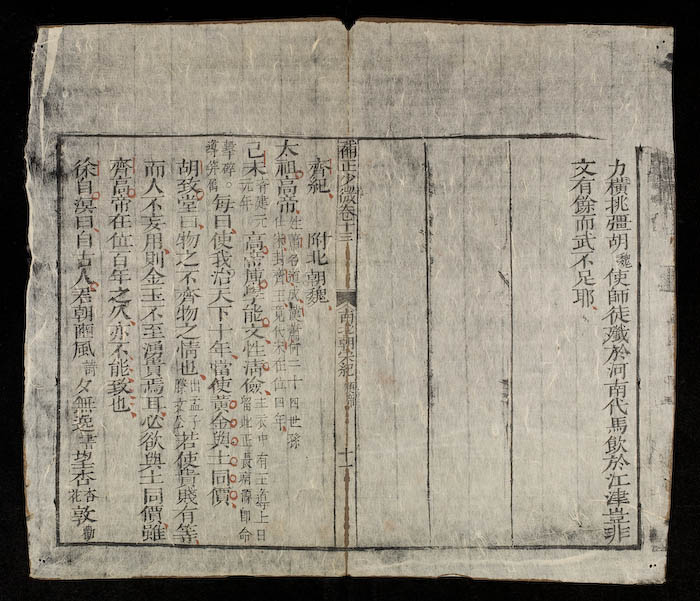 力橫挑彊胡魏使師徒殲於河南代馬飲於江津豈非
文有餘而武不足耶
補正少微 卷十三 南北朝宋紀 十一
齊紀 附北朝魏
太祖高帝姓蕭名道成 蕭何二十四世孫 仕宋封齊王 在位四年
己未 建元元年 高帝博學能文性清儉 主衣中有玉導上曰留此正長病源即命
擊碎 每曰使我治天下十年當使黃金與土同價
胡致堂曰物之不齊物之情也出孟子滕文公若使貴賤有等
而人不妄用則金玉不至湧貴焉耳必欲與土同價雖
齊高帝在位百年之久亦不能致也
徐自溟曰自古人君朝豳風詩夕無逸書望杏杏花敦勸